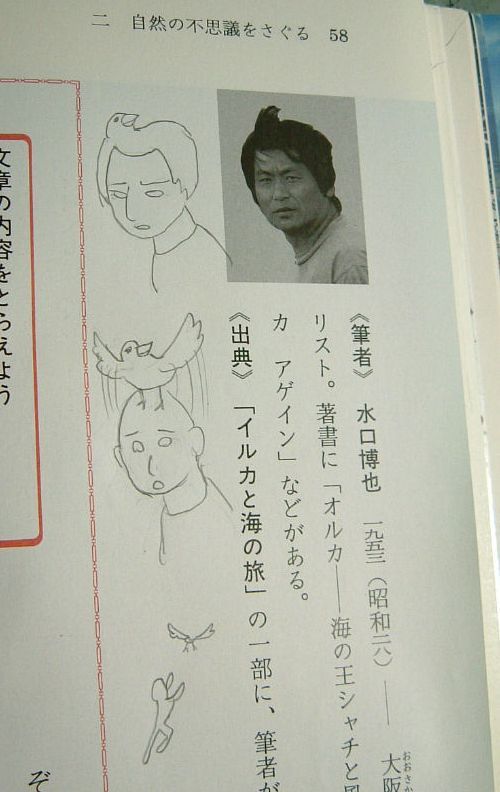 二　自然の不思議をさぐる　58
《筆者》　水口博也　一九五三（昭和二八）――　大阪
おおさか
リスト。著書に「オルカ――海の王シャチと風
カ　アゲイン」などがある。
《出典》　「イルカと海の旅」の一部に、筆者が
ぞ
文章の内容をとらえよう